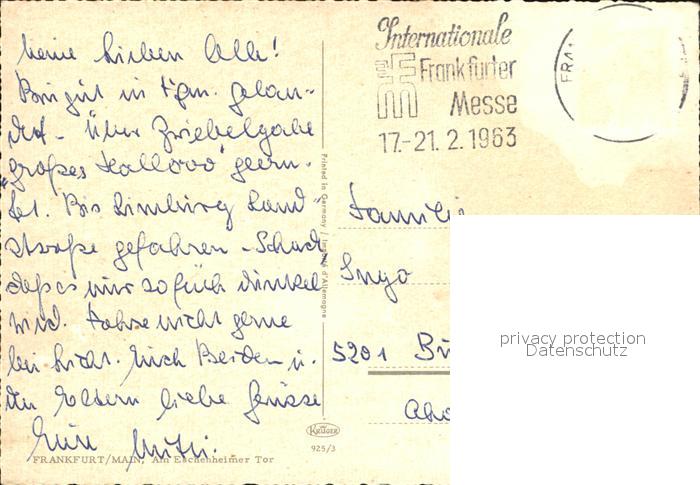 Meine Lieben Alle!
Bin gut in Ffm. gelan-
det - Über Zwiebelgabe
"großes Halloooo" geern-
tet. Bis Limburg Land-
straße gefahren - Schad
daß es nur so früh dunkel
wird. Fahre nicht gerne
bei Licht. Euch Beiden u.
den Eltern liebe Grüsse
Eure
FRANKFURT/MAIN, Am Eschenheimer Tor
Printed in Germany / Imprimé d'Allemagne
KRÜGER
925/3
Internationale
Frankfurter
Messe
17.-21. 2. 1963
FRA
Familie
Ingo
5201 Bü
privacy protection
Datenschutz